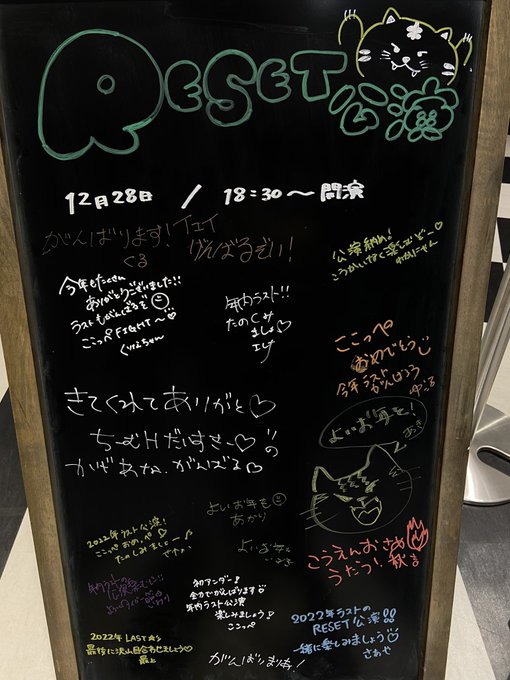 RESET公演
12月28日 / 18:30〜開演
がんばります！イェイ
くる
げんばるぞい！
公演納め！
今年もたくさん
ありがとうございました!!
ラストもがんばるぞ
こっぺFIGHT〜♡
くりんちゃん
年内ラスト!!
たのしみ
ましょ♡
ここっぺ
おめでとう
今年ラスト
がんばろう
ゆうる
きてくれてありがと♡
ちーむHだいすきー♡
かぜあね、がんばる♡
よいお年を！
あき
よいお年を
あかり
よいお年を
2022年ラスト公演！
たのしみましょー♪
こうえんおさめ
うたつ！
初アンダー！
全力でがんばります
年内ラスト公演
楽しみましょう！
こっぺ
2022年ラストの
RESET公演!!
一緒に楽しみましょう♡
さあや
2022年 LAST☆
最後に沢山目合わせましょう♡
最上
がんばりまっす！